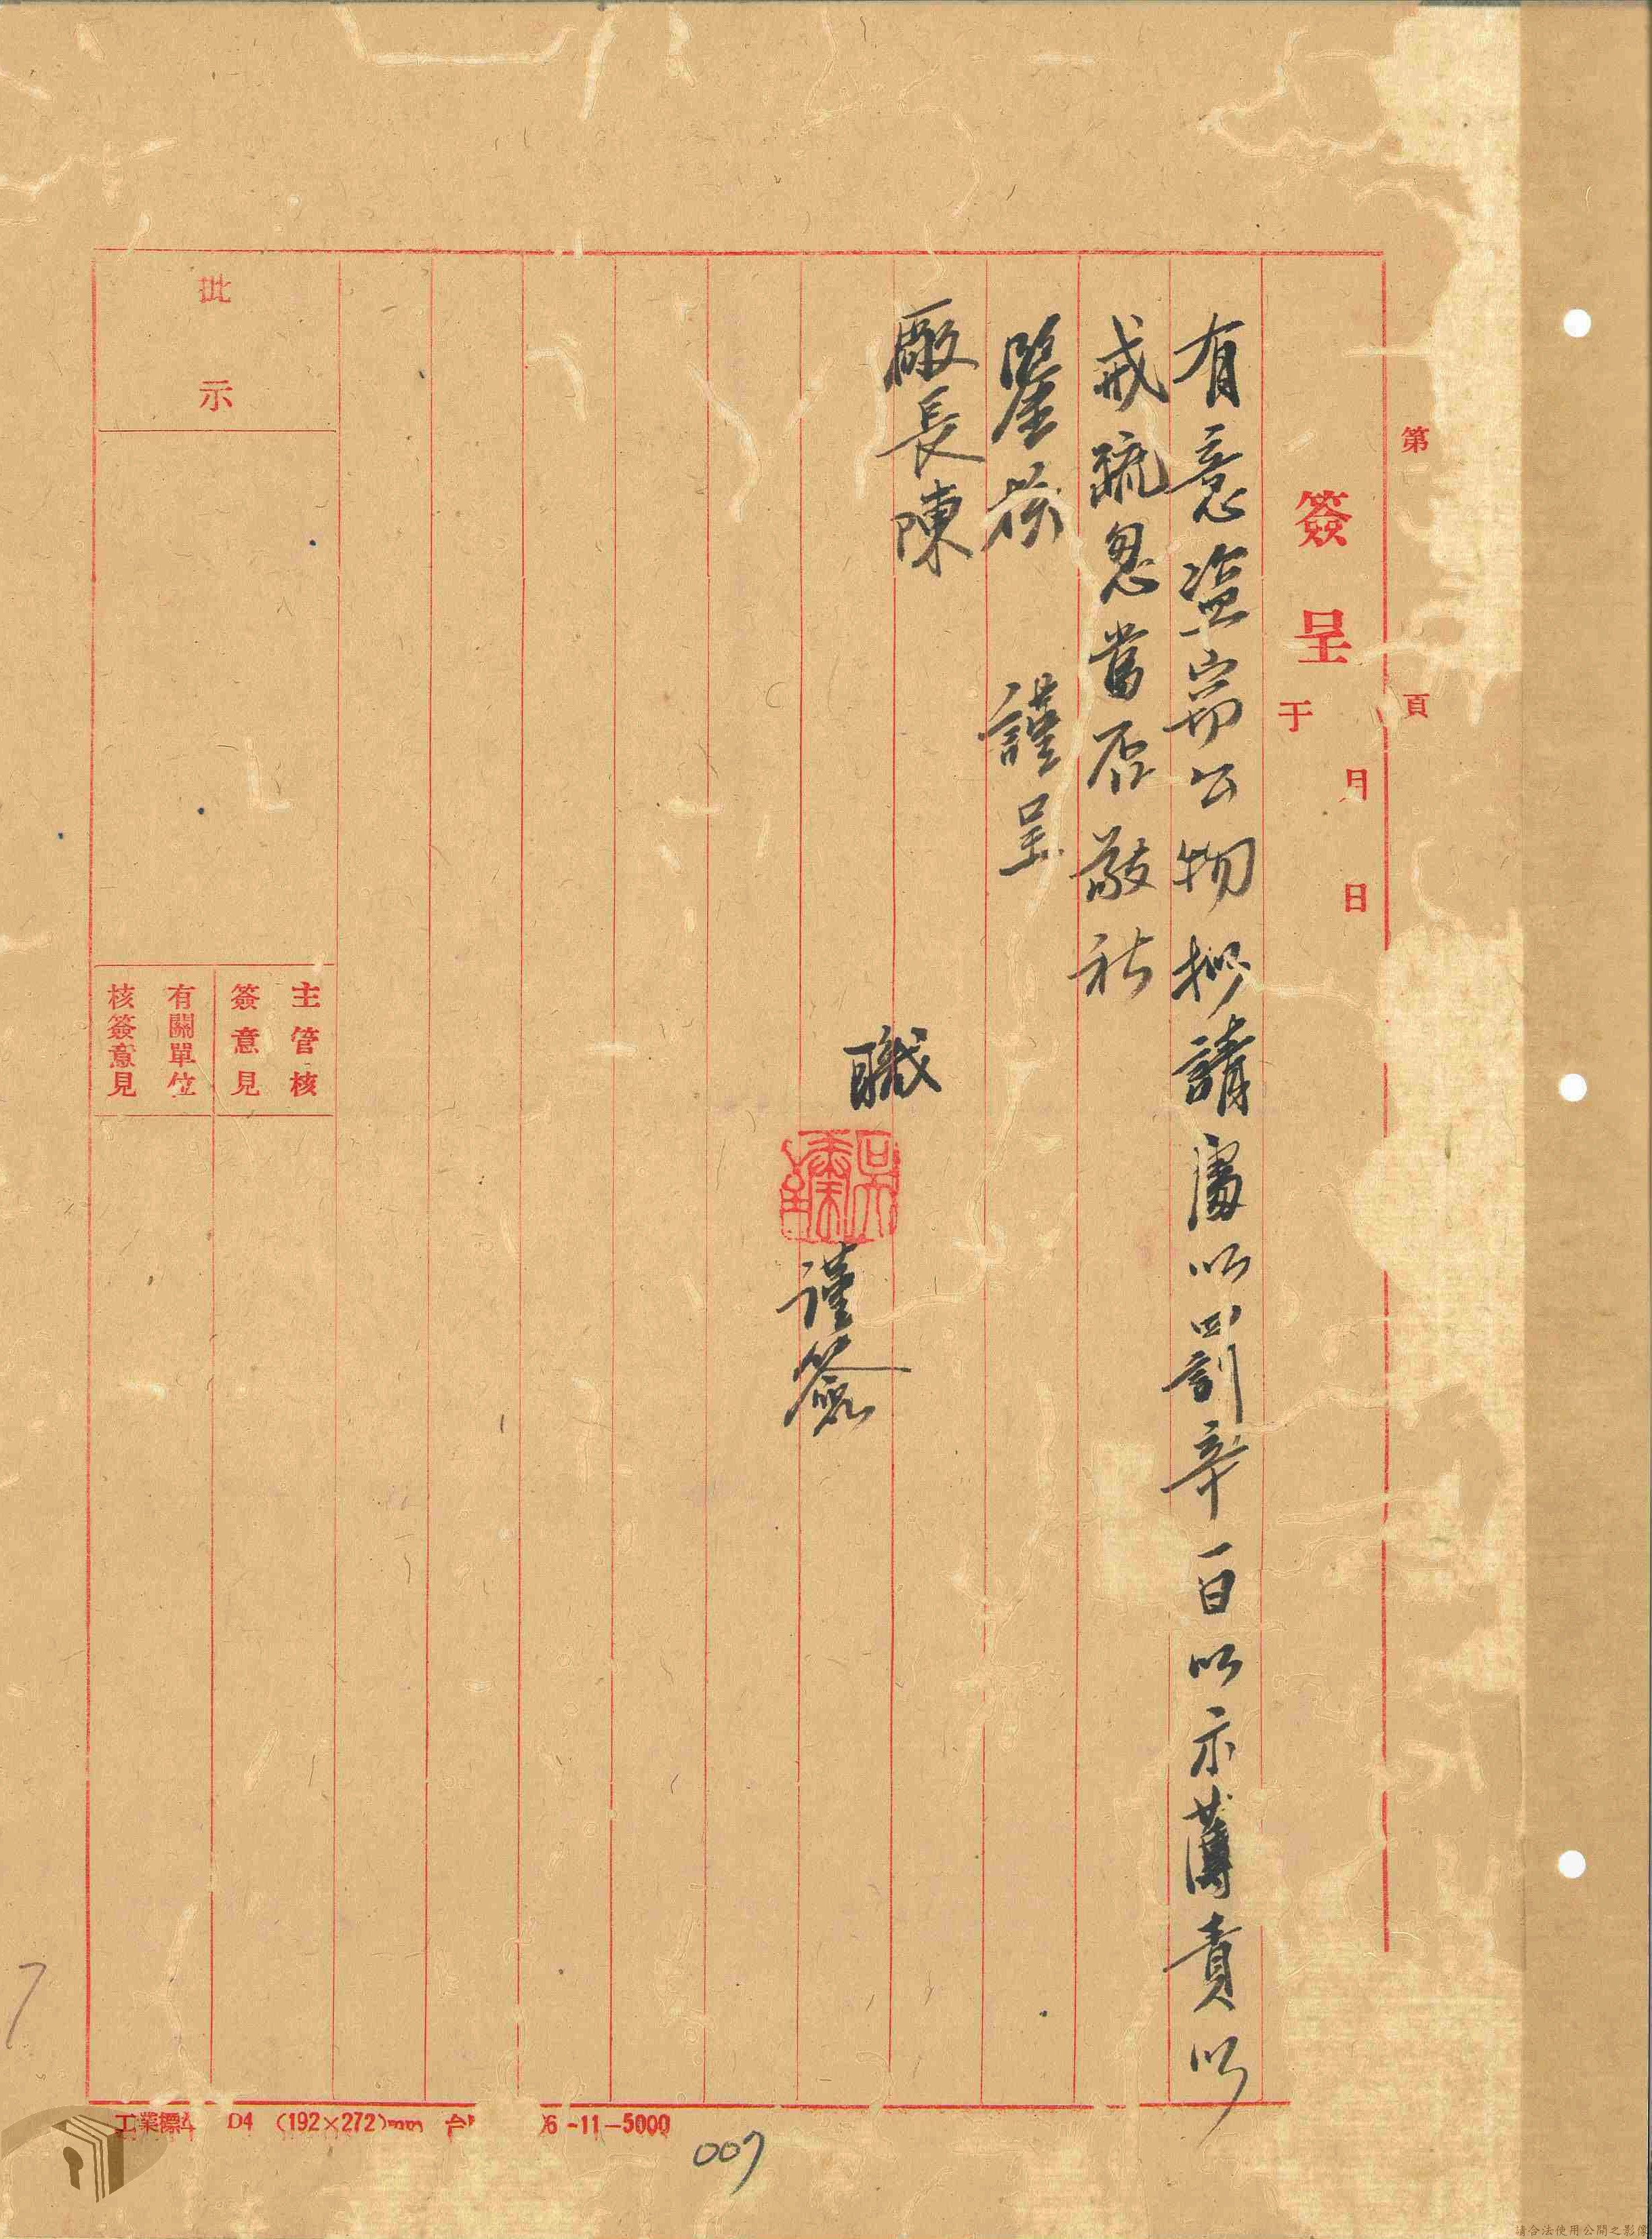 第 頁
簽呈 于 月 日
有意盜竊公物擬請處以罰薪百以示薄責以
戒疏忽當否敬祈
鑒核 謹呈
廠長陳
職 吳 謹簽
批示
主管核
簽意見
有關單位
核簽意見
工業標 D4 (192×272)mm 6-11-5000
007
7
請合法使用公開之影像